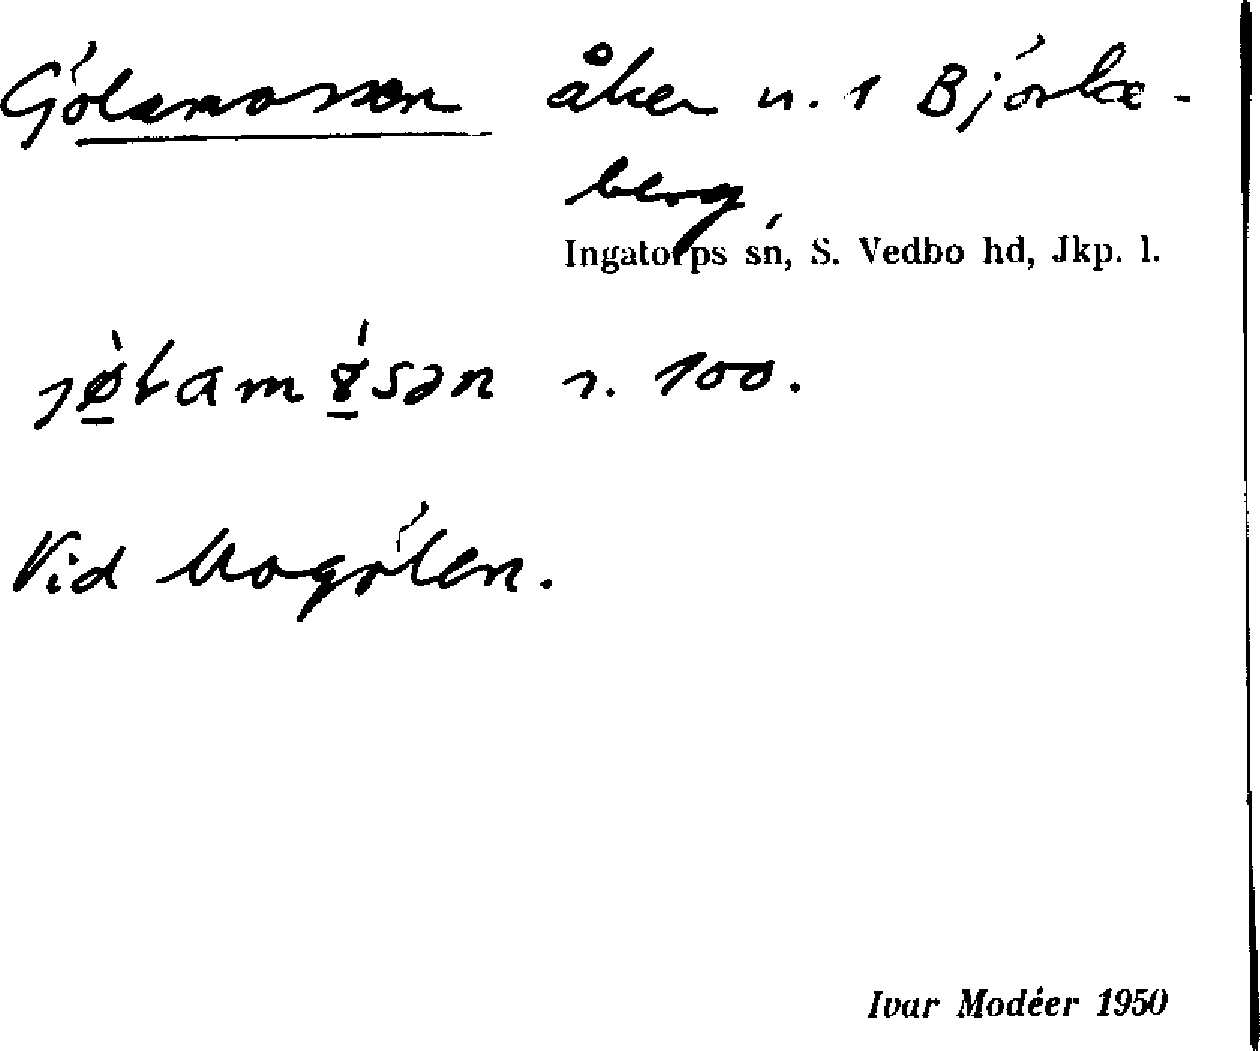 Gölamossen åker n. 1 Björkeberg
Ingatorps sn, S. Vedbo hd, Jkp. l.
r. 100.
Vid Mogölen.
Ivar Modéer 1950